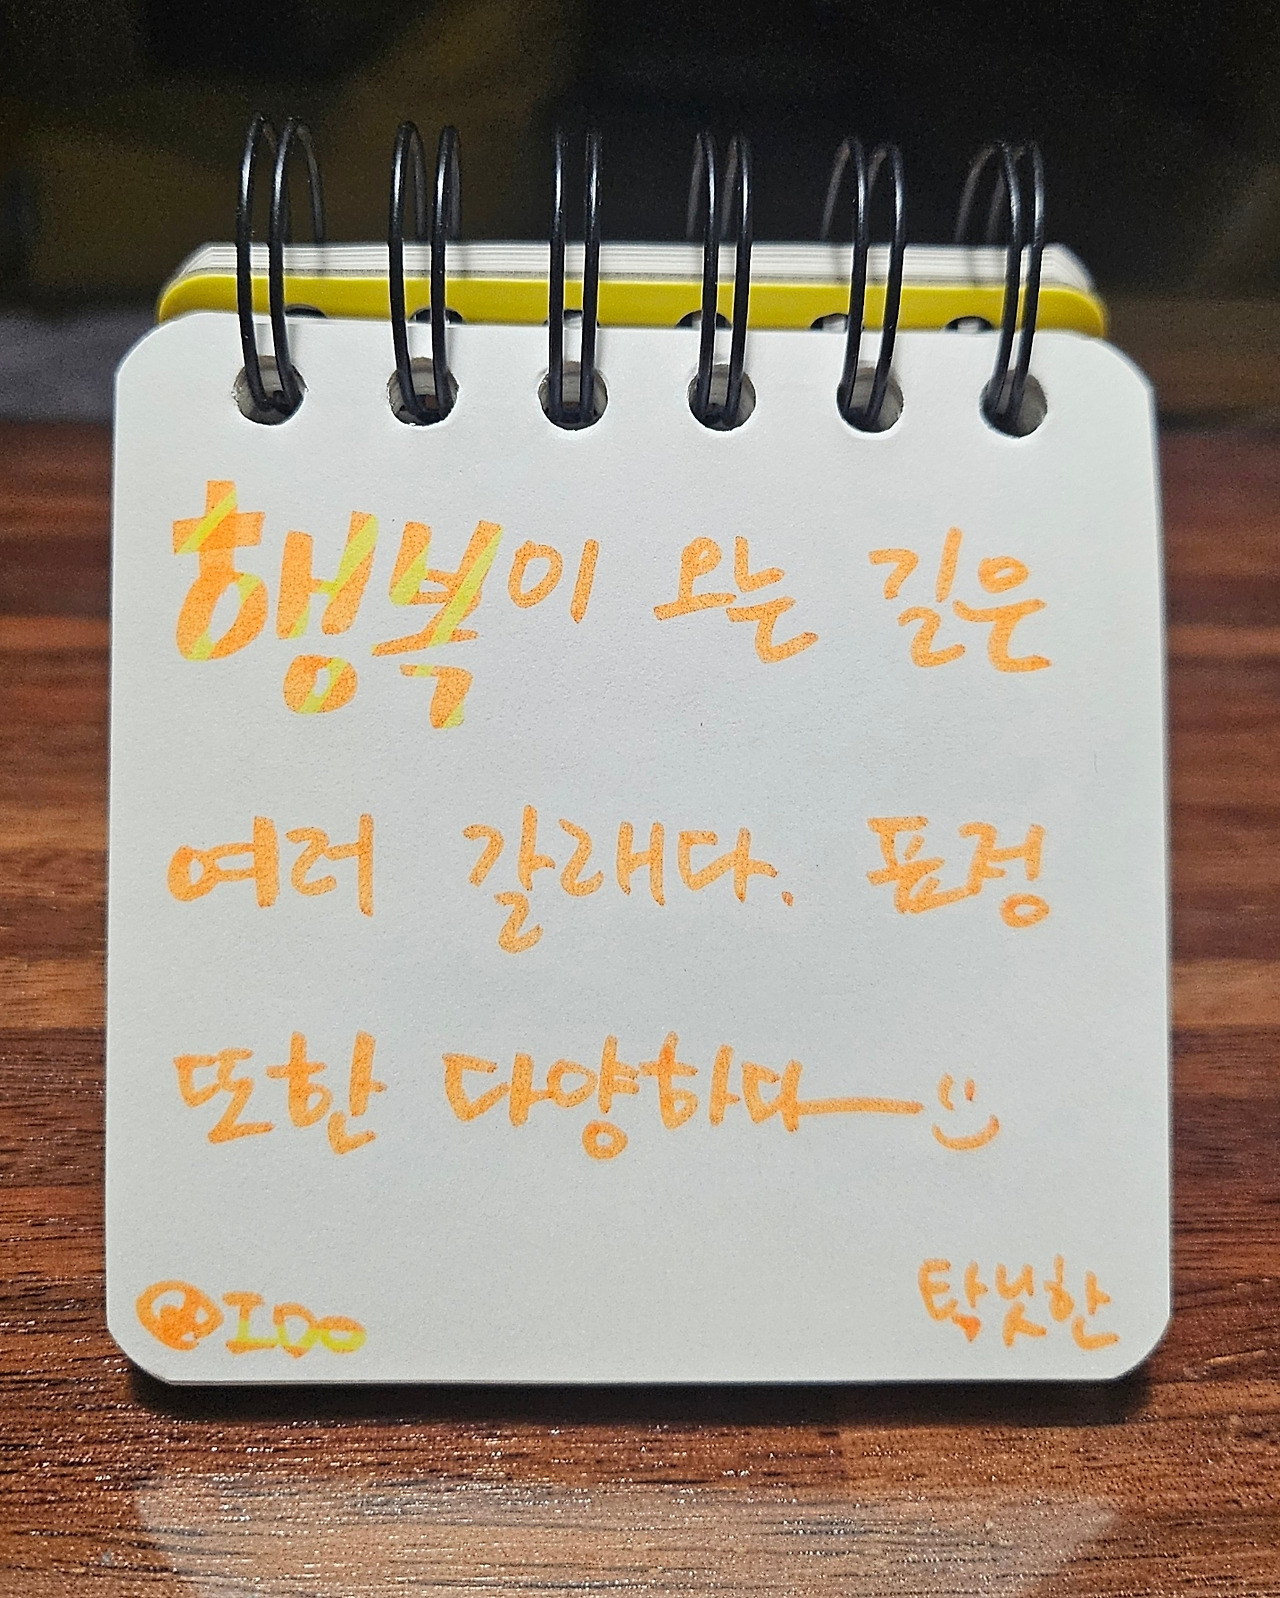 행복이 오는 길은
여러 갈래다. 표정
또한 다양하다 :)
IDo
탁닛한